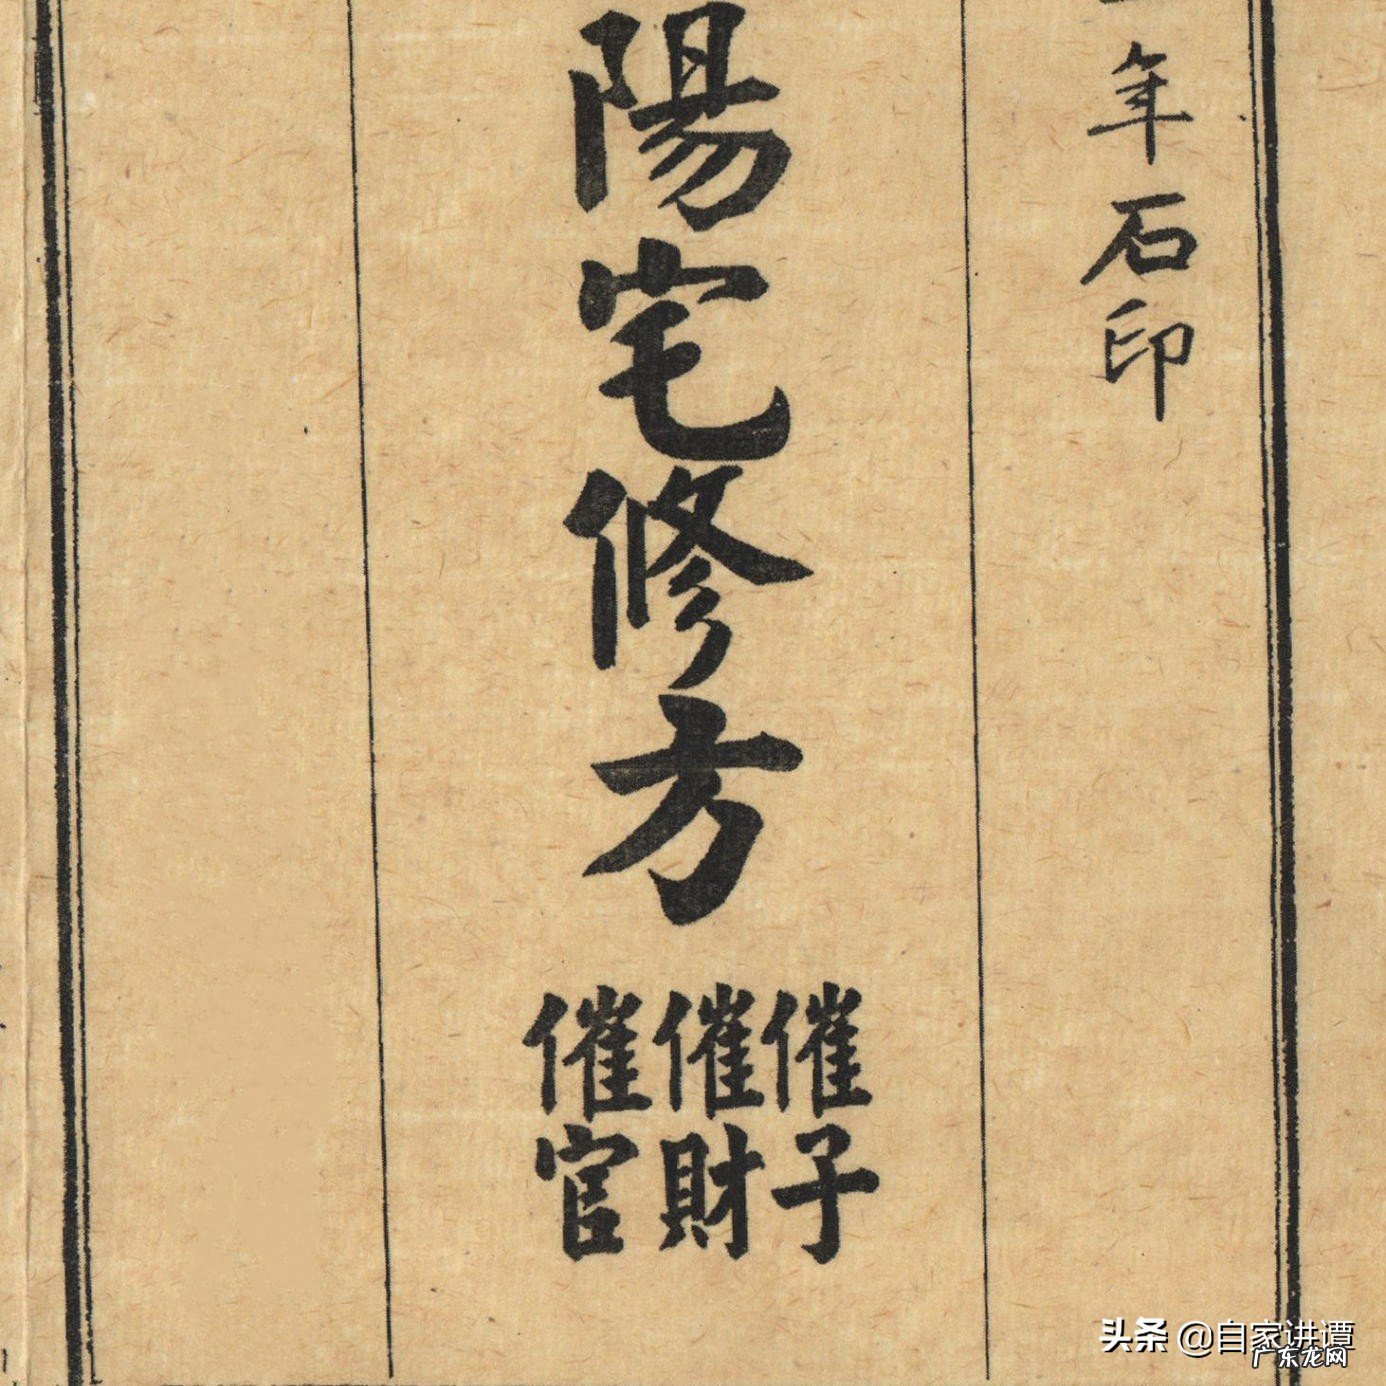 年石印
陽宅修方
催子
催財
催官
头条 @自家讲谭
广东龙网